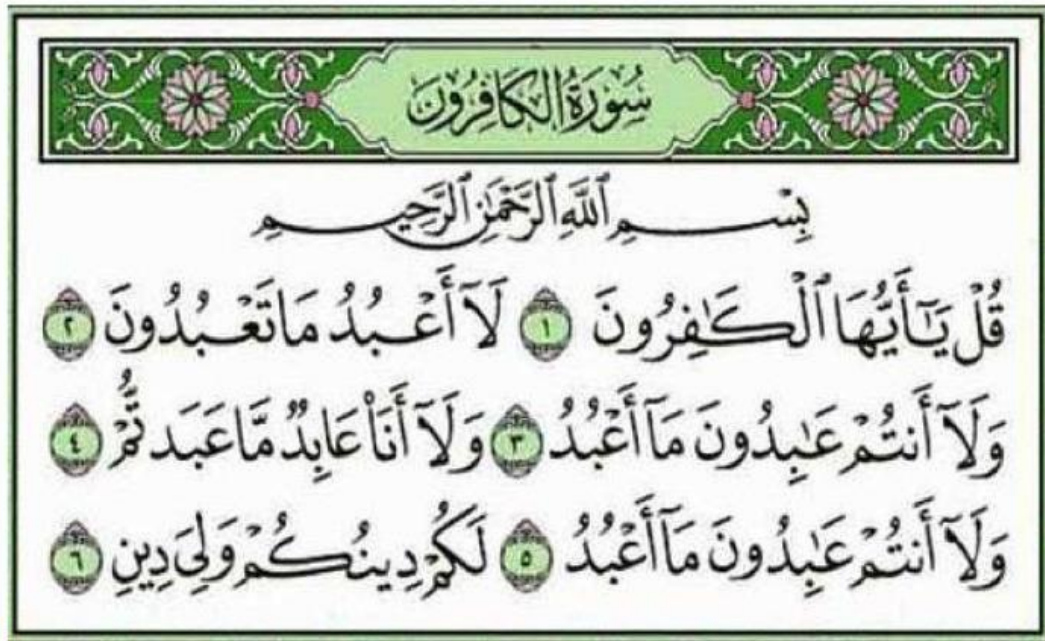 سُورَةُ الكَافِرُونَ
بِسْمِ ٱللَّهِ ٱلرَّحْمَٰنِ ٱلرَّحِيمِ
قُلْ يَـٰٓأَيُّهَا ٱلْكَـٰفِرُونَ ١ لَآ أَعْبُدُ مَا تَعْبُدُونَ ٢
وَلَآ أَنتُمْ عَـٰبِدُونَ مَآ أَعْبُدُ ٣ وَلَآ أَنَا۠ عَابِدٌ مَّا عَبَدتُّمْ ٤
وَلَآ أَنتُمْ عَـٰبِدُونَ مَآ أَعْبُدُ ٥ لَكُمْ دِينُكُمْ وَلِىَ دِينِ ٦